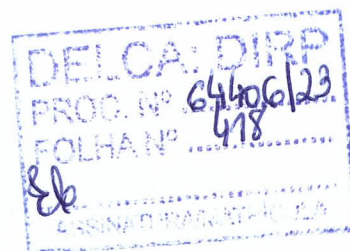 DELCA: DIRP
PROC. Nº 64406/23
FOLHA Nº 418